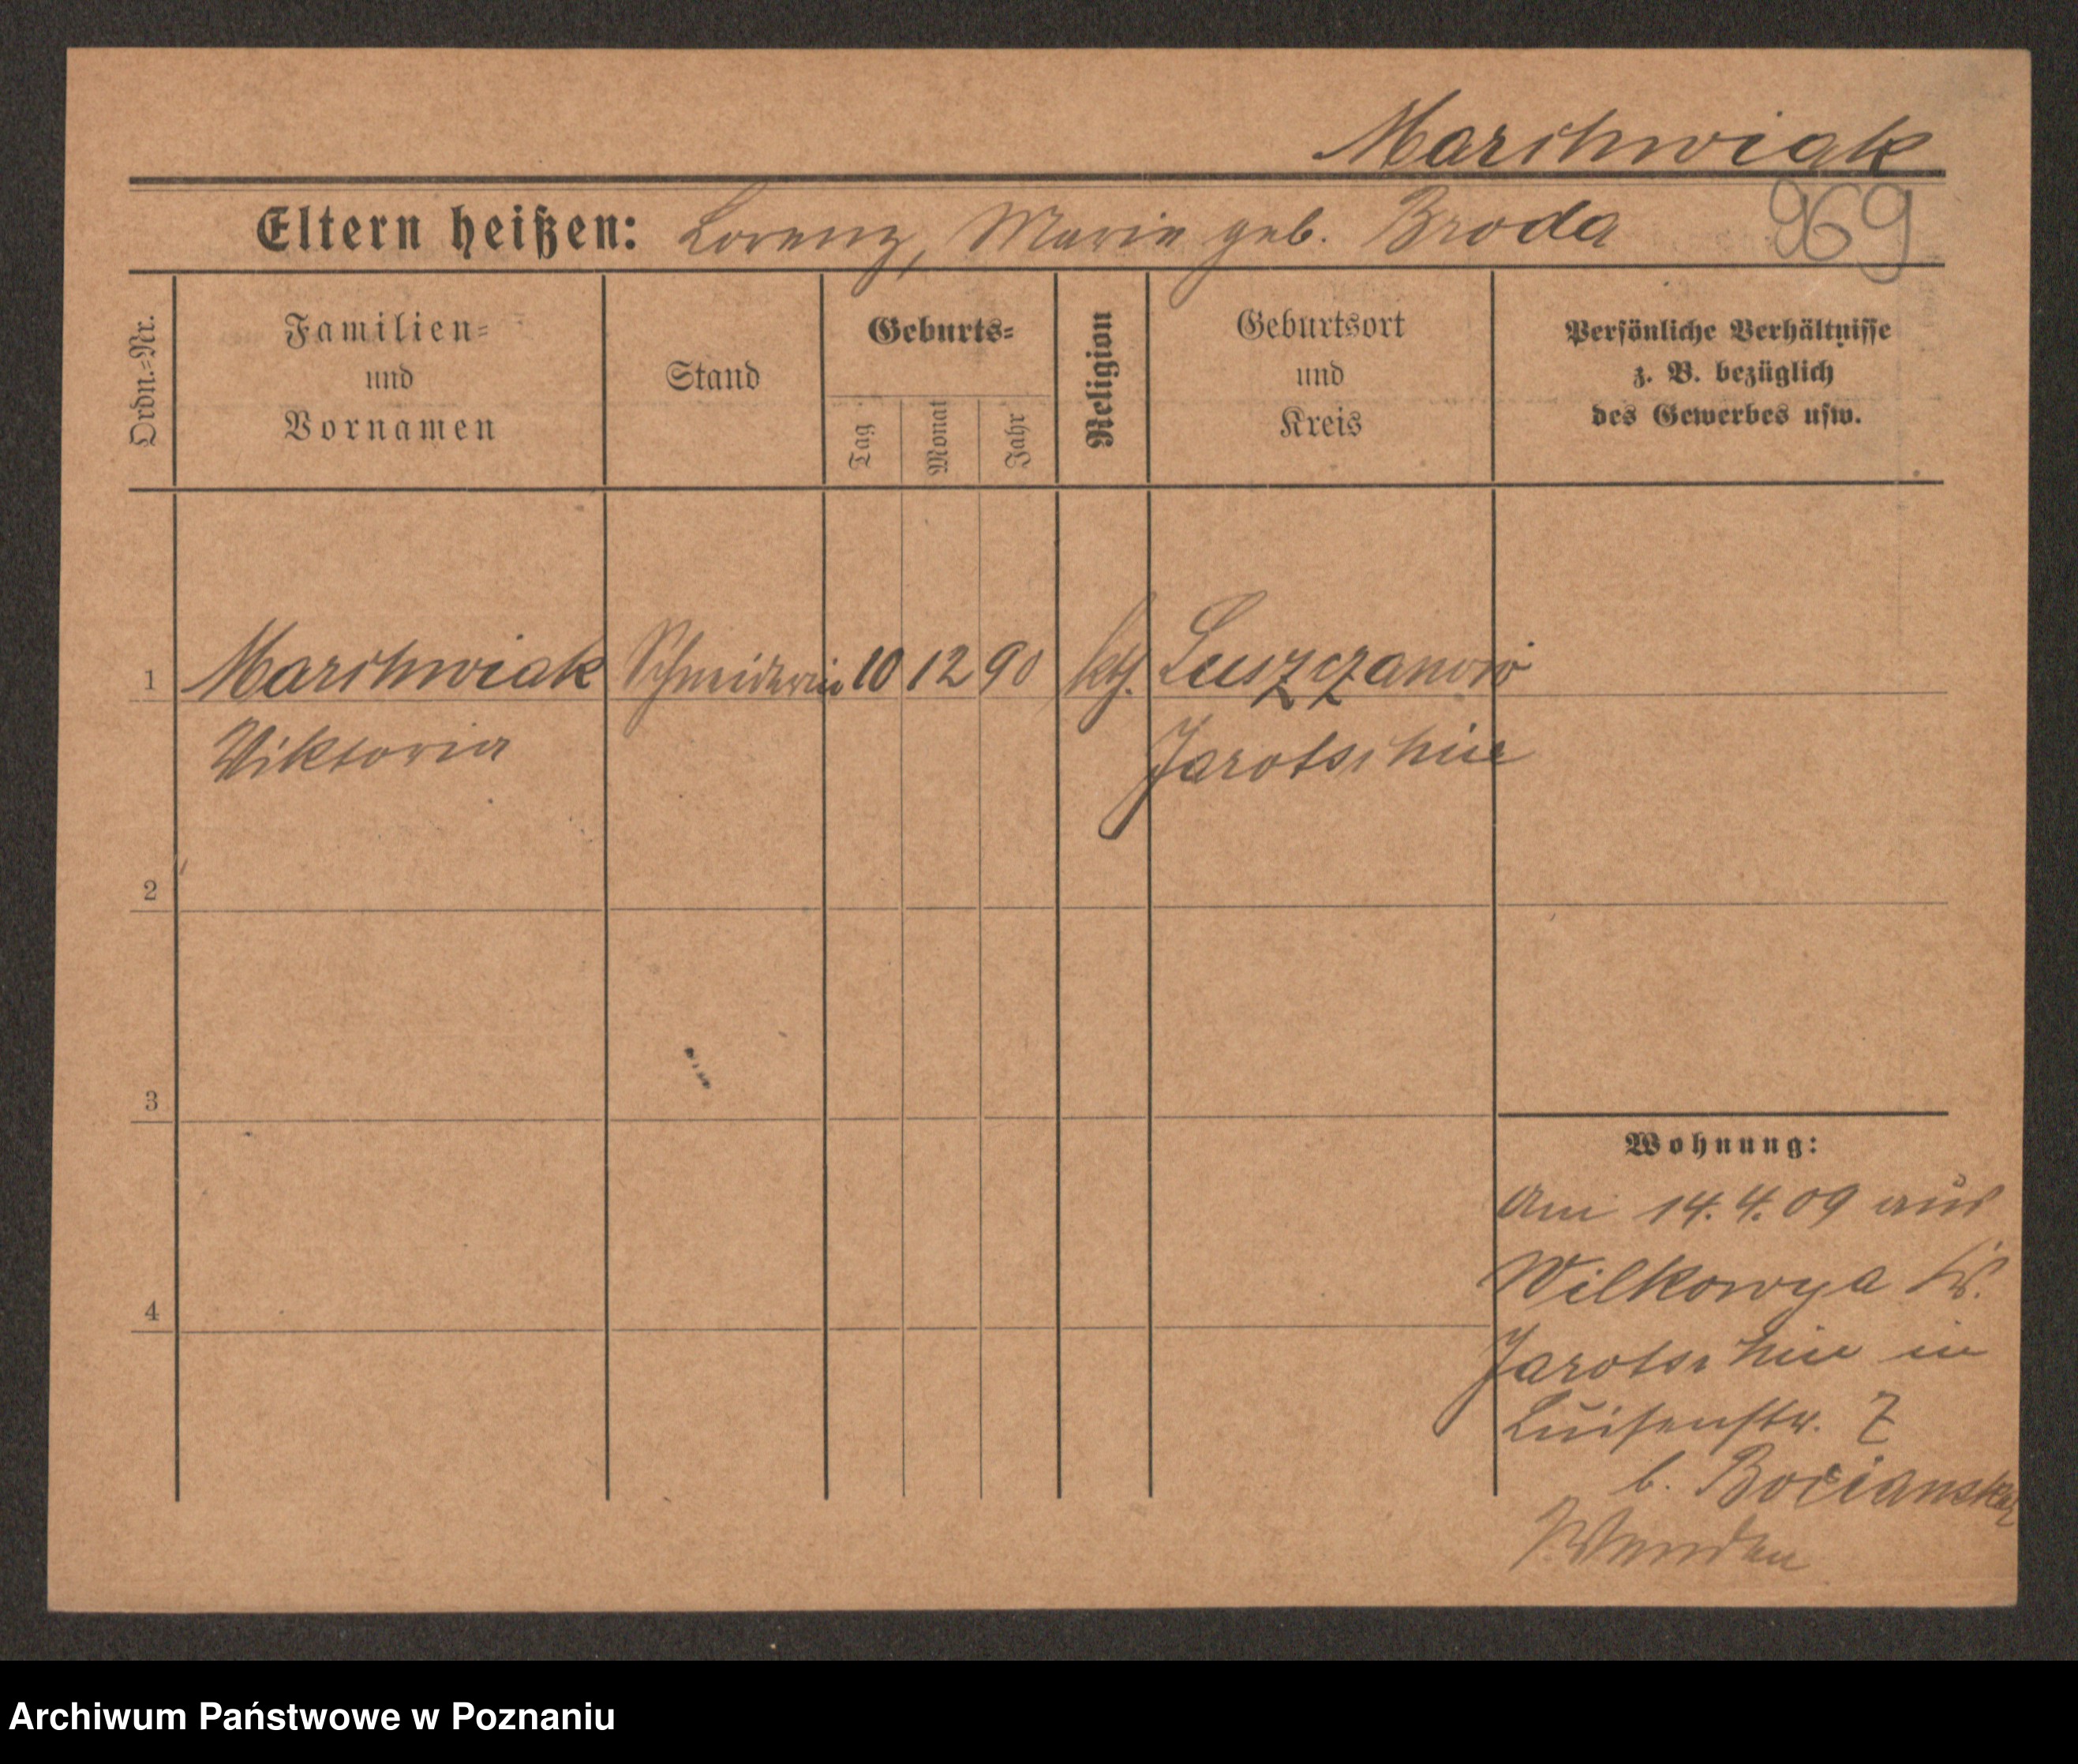 Marchwiak
Eltern heißen: Lorenz, Marie geb. Broda
969
Ordn.-Nr.
Familien-
und
Vornamen
Stand
Geburts-
Tag
Monat
Jahr
Religion
Geburtsort
und
Kreis
Persönliche Verhältnisse
z. B. bezüglich
des Gewerbes usw.
1 Marchwiak Schneiderin 10 12 90 kth. Luszczanow
Viktoria Jarotschin
2
3
4
Wohnung:
Am 14.4.09 aus
Wilkowya Kr.
Jarotschin in
Luisenstr. 7
b. Bocianski
Archiwum Państwowe w Poznaniu